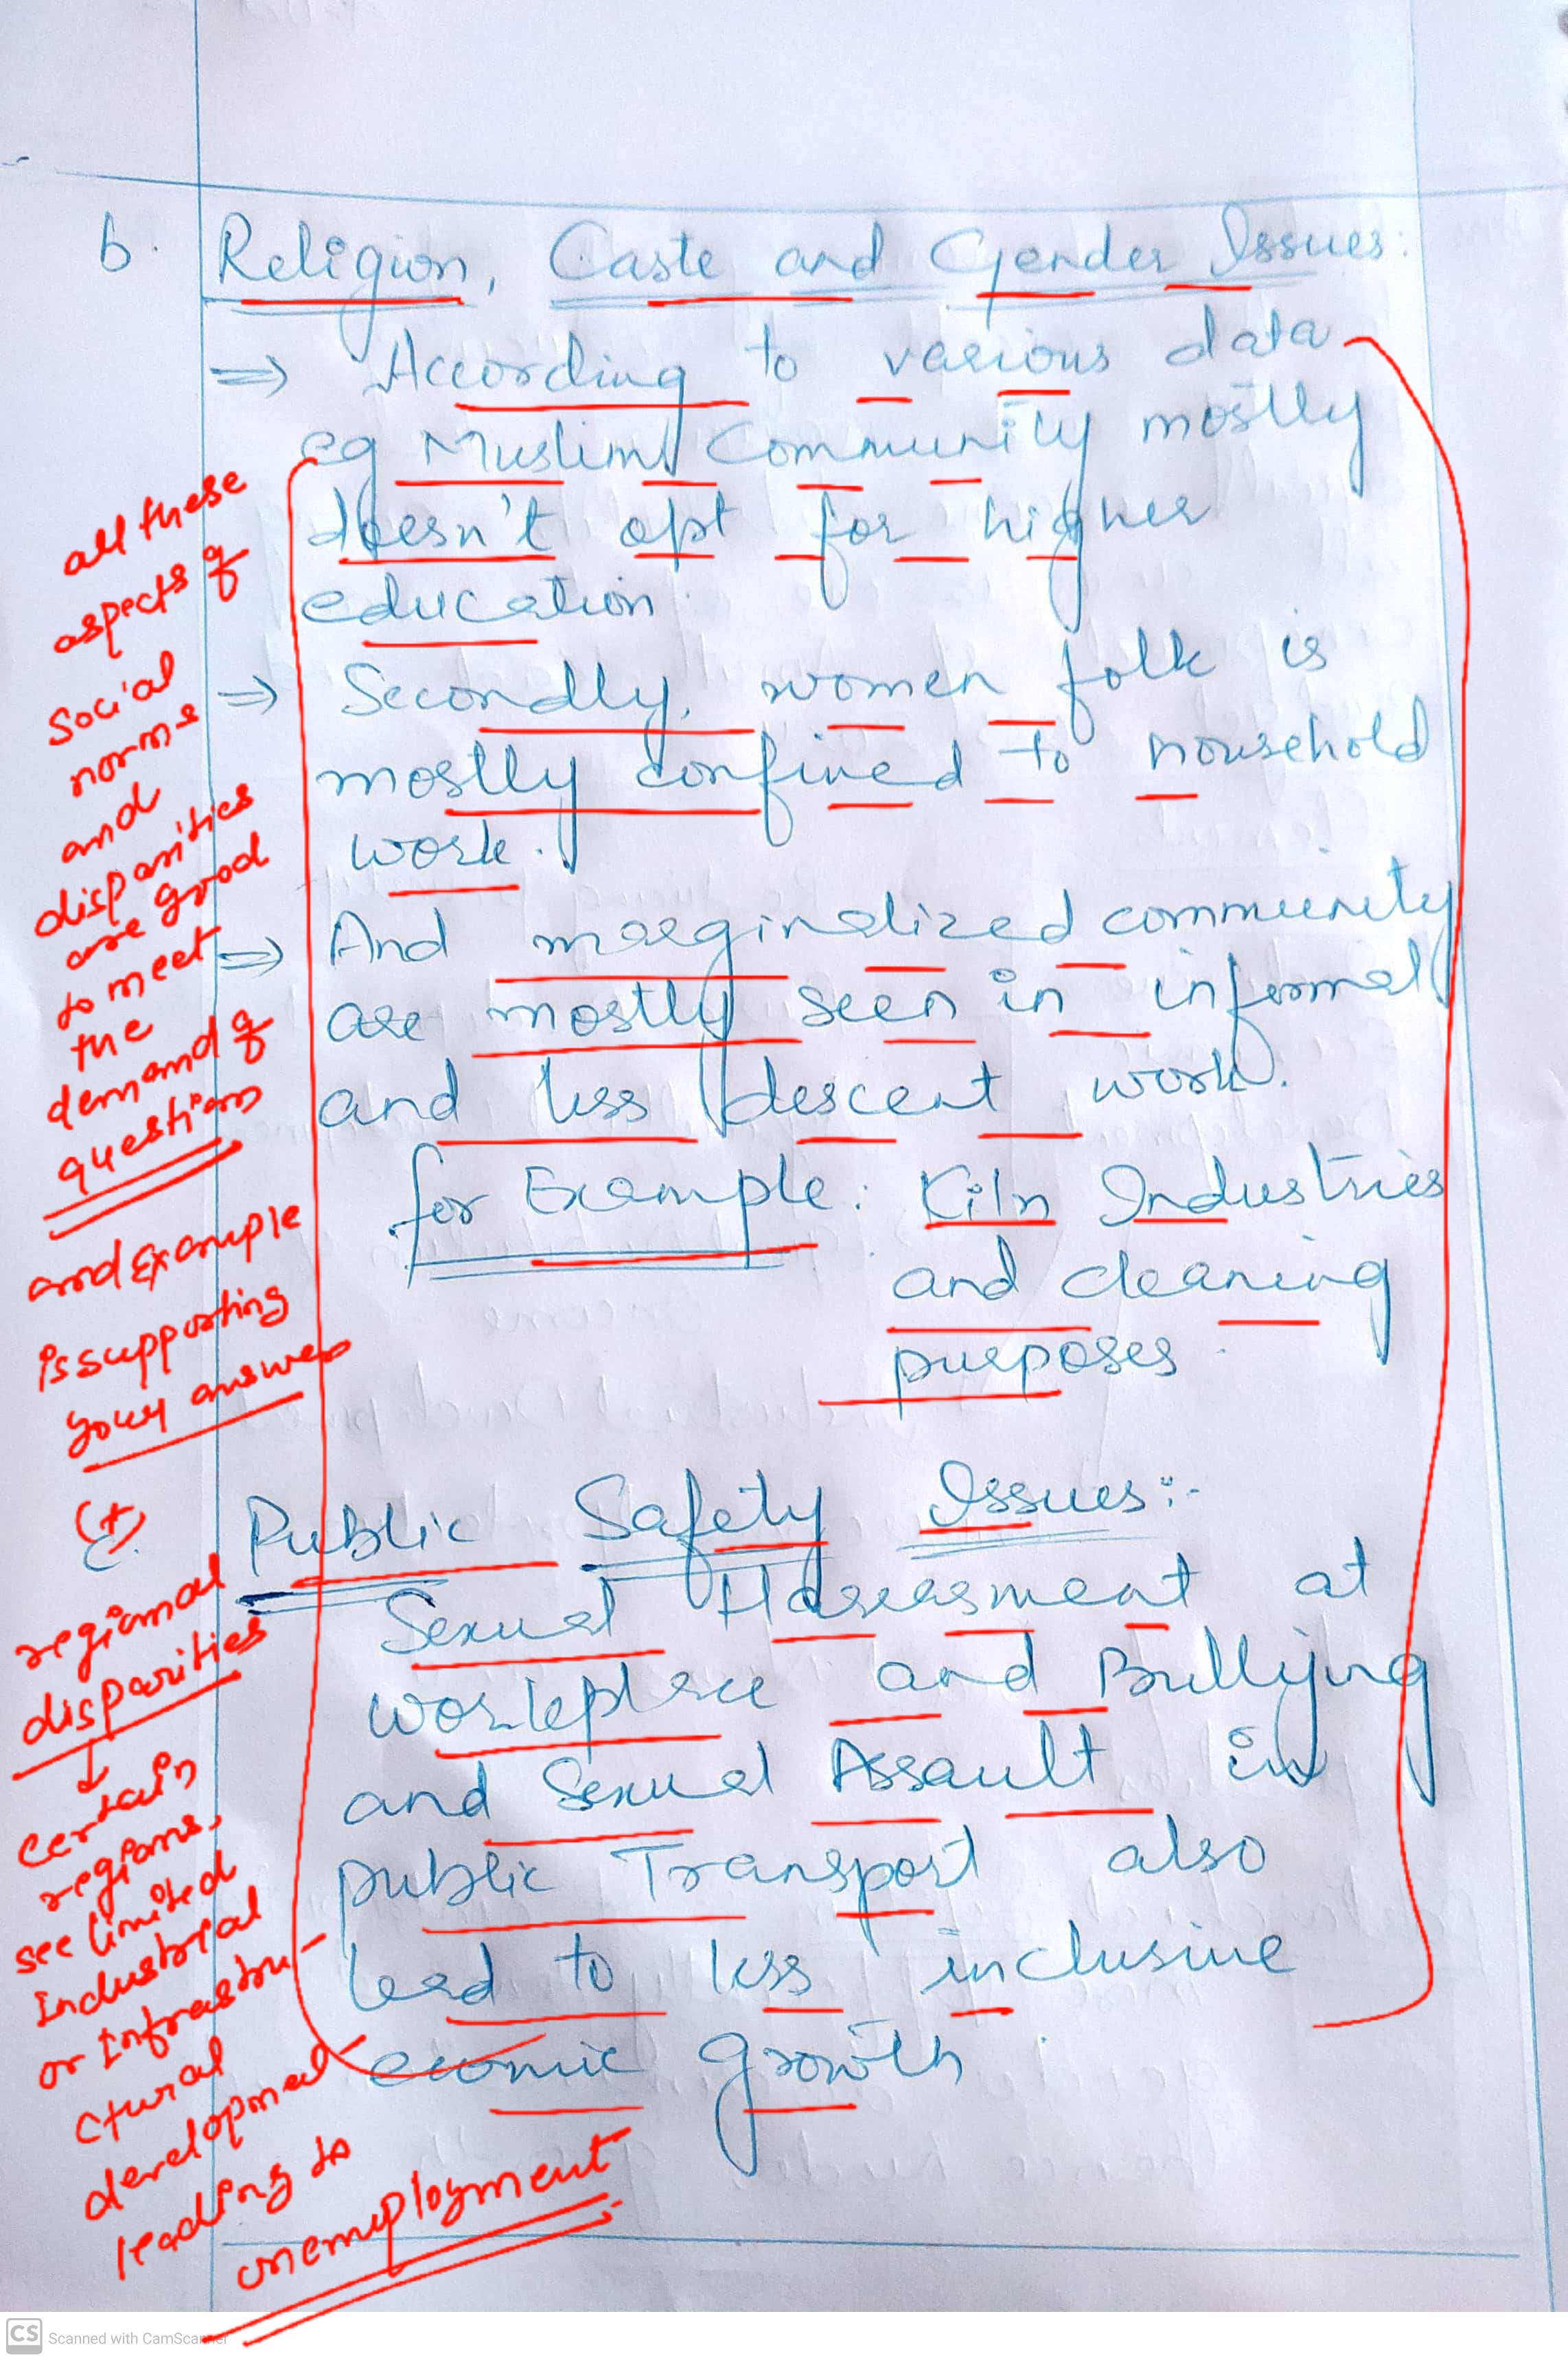 b. Religion, Caste and Gender Issues:
⇒ According to various data
eg Muslim Community mostly
doesn't opt for higher
education.
⇒ Secondly, women folk is
mostly confined to household
work.
⇒ And marginalized community
are mostly seen in informal
and less descent work.
for Example: Kiln Industries
and cleaning
purposes.
c. Public Safety Issues:-
Sexual Harassment at
workplace and Bullying
and Sexual Assault in
public Transport also
lead to less inclusive
ecomic growth.
all these
aspects of
social
norms
and
disparities
are good
to meet
the
demand of
question
and Example
is supporting
your answer
(+)
regional
disparities
↓
certain
regions,
see limited
Industrial
or Infrastru-
ctural
development
leading to
unemployment
CS Scanned with CamScanner